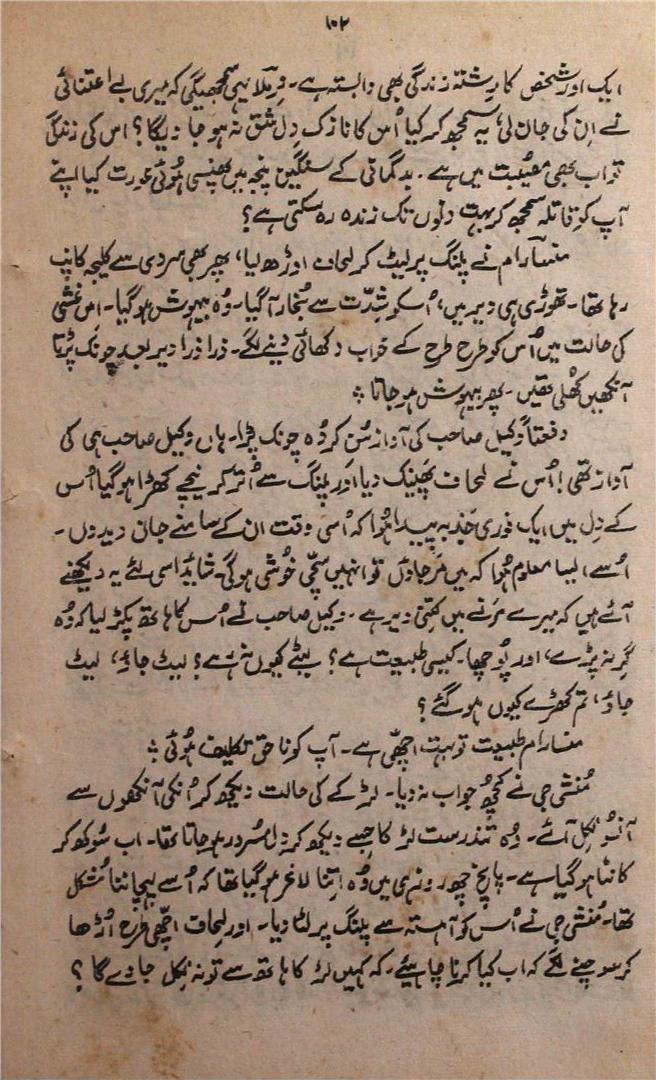 ۱۰۲
ایک اور شخص کا رِشتہ زندگی بھی وابستہ ہے۔ نِرملا یہی سمجھیگی کہ میری بے اعتنائی
نے اِن کی جان لی، یہ سمجھ کر کیا اُس کا نازک دِل شق نہ ہو جاویگا؟ اس کی زندگی
تو اب بھی مصیبت میں ہے۔ بدگمانی کے سنگین پنجہ میں پھنسی ہُوئی عورت کیا اپنے
آپ کو قاتلہ سمجھ کر بہت دنوں تک زندہ رہ سکتی ہے؟
منسارام نے پلنگ پر لیٹ کر لحاف اوڑھ لیا، پھر بھی سردی سے کلیجہ کانپ
رہا تھا۔ تھوڑی ہی دیر میں، اُسکو شِدّت سے بُخار آگیا۔ وُہ بیہوش ہو گیا۔ اس غشی
کی حالت میں اُس کو طرح طرح کے خواب دکھائی دینے لگے۔ ذرا ذرا دیر بعد چونک پڑتا
آنکھیں کُھلی تھیں۔ پھر بیہوش ہو جاتا ؞
دفعتاً وکیل صاحب کی آواز سُن کر وُہ چونک پڑا۔ ہاں وکیل صاحب ہی کی
آواز تھی! اُس نے لحاف پھینک دیا اور پلنگ سے اُتر کر نیچے کھڑا ہو گیا اُس
کے دِل میں ایک فوری جَذبہ پیدا ہُوا کہ اُسی وقت ان کے سامنے جان دیدوں۔
اُسے ایسا معلوم ہُوا کہ میں مَر جاؤں تو انہیں سچّی خُوشی ہوگی۔ شاید اسی لئے یہ دیکھنے
آئے ہیں کہ میرے مَرنے میں کِتنی دیر ہے۔ وکیل صاحب نے اُس کا ہاتھ پکڑ لیا کہ وُہ
گِر نہ پڑے، اور پُوچھا۔ کیسی طبیعت ہے؟ لیٹے کیوں نہ رہے؟ لیٹ جاؤ، لیٹ
جاؤ، تم کھڑے کیوں ہو گئے؟
منسارام طبیعت تو بہت اچھّی ہے۔ آپ کو ناحق تکلیف ہُوئی ؞
مُنشی جی نے کُچھ جواب نہ دیا۔ لڑکے کی حالت دیکھ کر اُنکی آنکھوں سے
آنسُو نِکل آئے۔ وُہ تندرست لڑکا جسے دیکھ کر دِل مسُرور ہو جاتا تھا۔ اب سُوکھ کر
کانٹا ہو گیا ہے۔ پانچ چھ روز ہی میں وُہ اِتنا لاغر ہو گیا تھا کہ اُسے پہچاننا مُشکل
تھا۔ مُنشی جی نے اُس کو آہستہ سے پلنگ پر لٹا دیا۔ اور لحاف اچھّی طرح اُڑھا
کر سوچنے لگے کہ اب کیا کرنا چاہیئے۔ کہ کہیں لڑکا ہاتھ سے تو نہ نِکل جاوے گا؟